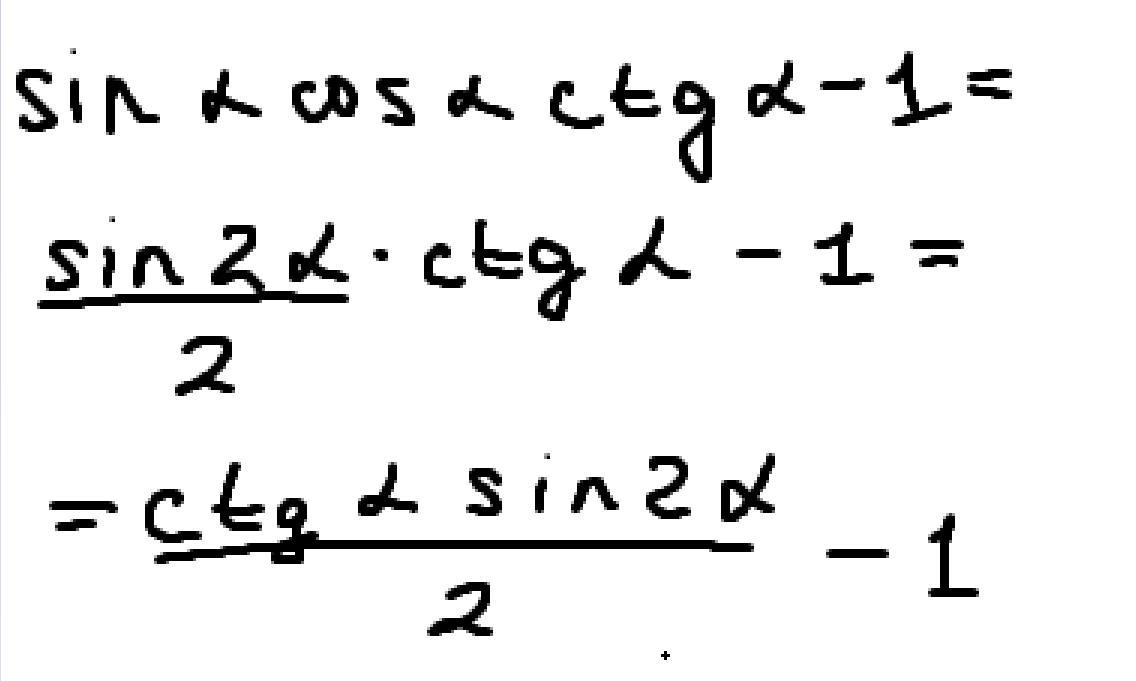 sin α cos α ctg α - 1 =
sin 2α / 2 · ctg α - 1 =
= ctg α sin 2α / 2 - 1